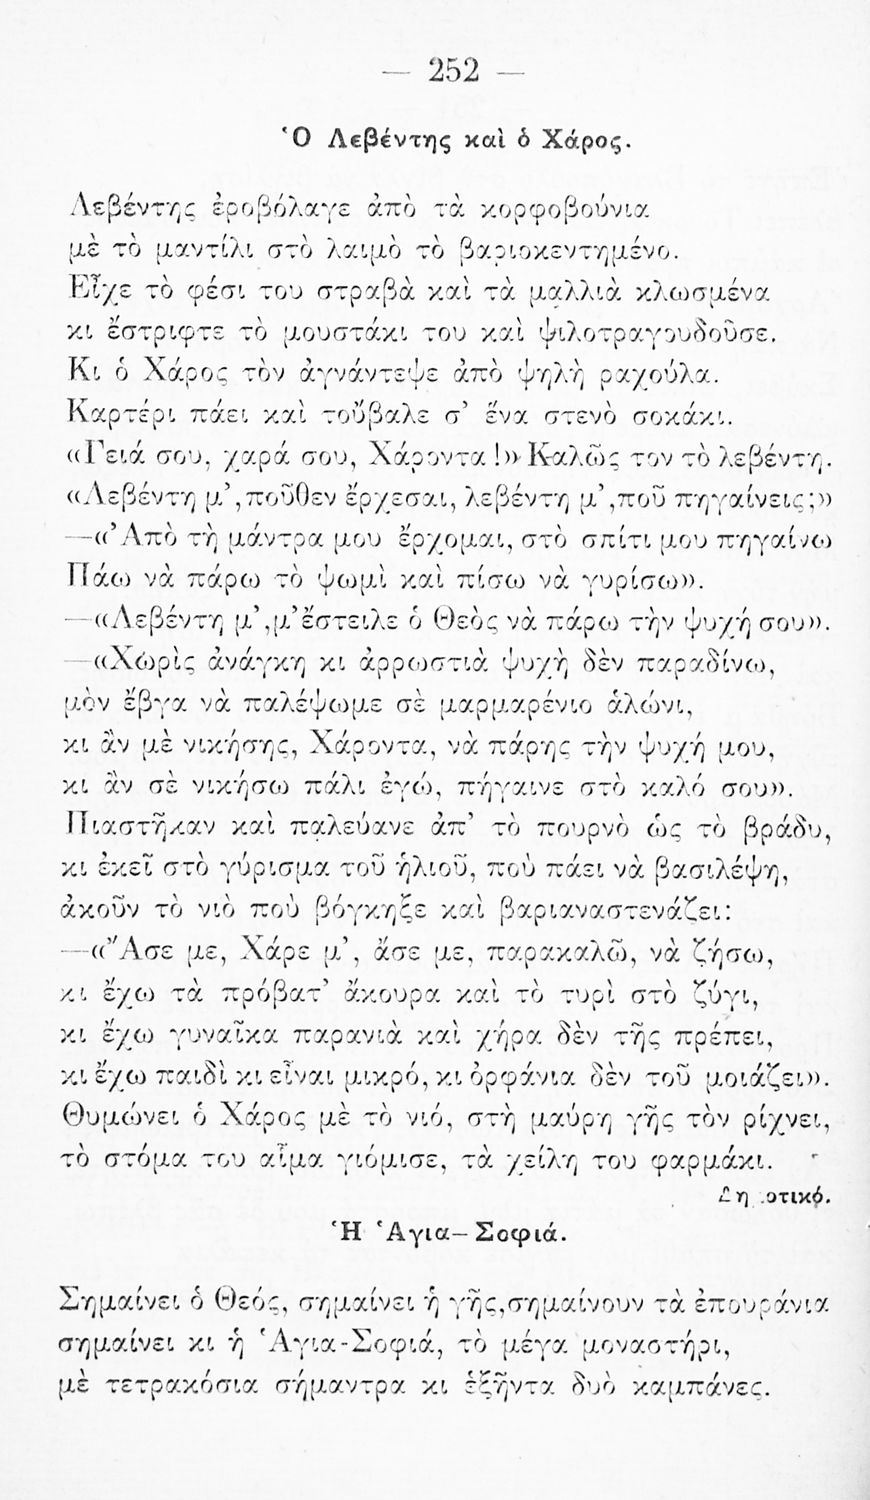 — 252 —
Ὁ Λεβέντης καὶ ὁ Χάρος.
Λεβέντης ἐροβόλαγε ἀπὸ τὰ κορφοβούνια
μὲ τὸ μαντίλι στὸ λαιμὸ τὸ βαριοκεντημένο.
Εἶχε τὸ φέσι του στραβὰ καὶ τὰ μαλλιὰ κλωσμένα
κι ἔστριφτε τὸ μουστάκι του καὶ ψιλοτραγουδοῦσε.
Κι ὁ Χάρος τὸν ἀγνάντεψε ἀπὸ ψηλὴ ραχούλα.
Καρτέρι πάει καὶ τοὔβαλε σ’ ἕνα στενὸ σοκάκι.
«Γειά σου, χαρά σου, Χάροντα!» Καλῶς τον τὸ λεβέντη.
«Λεβέντη μ’, ποῦθεν ἔρχεσαι, λεβέντη μ’, ποῦ πηγαίνεις;»
—«Ἀπὸ τὴ μάντρα μου ἔρχομαι, στὸ σπίτι μου πηγαίνω
Πάω νὰ πάρω τὸ ψωμὶ καὶ πίσω νὰ γυρίσω».
—«Λεβέντη μ’, μ’ ἔστειλε ὁ Θεὸς νὰ πάρω τὴν ψυχή σου».
—«Χωρὶς ἀνάγκη κι ἀρρωστιὰ ψυχὴ δὲν παραδίνω,
μὸν ἔβγα νὰ παλέψωμε σὲ μαρμαρένιο ἁλώνι,
κι ἂν μὲ νικήσῃς, Χάροντα, νὰ πάρῃς τὴν ψυχή μου,
κι ἂν σὲ νικήσω πάλι ἐγώ, πήγαινε στὸ καλό σου».
Πιαστῆκαν καὶ παλεύανε ἀπ’ τὸ πουρνὸ ὡς τὸ βράδυ,
κι ἐκεῖ στὸ γύρισμα τοῦ ἡλιοῦ, ποὺ πάει νὰ βασιλέψη,
ἀκοῦν τὸ νιὸ ποὺ βόγκηξε καὶ βαριαναστενάζει:
—«Ἄσε με, Χάρε μ’, ἄσε με, παρακαλῶ, νὰ ζήσω,
κι ἔχω τὰ πρόβατ’ ἄκουρα καὶ τὸ τυρὶ στὸ ζύγι,
κι ἔχω γυναῖκα παρανιὰ καὶ χήρα δὲν τῆς πρέπει,
κι ἔχω παιδὶ κι εἶναι μικρό, κι ὀρφάνια δὲν τοῦ μοιάζει».
Θυμώνει ὁ Χάρος μὲ τὸ νιό, στὴ μαύρη γῆς τὸν ρίχνει,
τὸ στόμα του αἷμα γιόμισε, τὰ χείλη του φαρμάκι.
Ἡ Ἁγια–Σοφιά.
Σημαίνει ὁ Θεός, σημαίνει ἡ γῆς, σημαίνουν τὰ ἐπουράνια
σημαίνει κι ἡ Ἁγια-Σοφιά, τὸ μέγα μοναστήρι,
μὲ τετρακόσια σήμαντρα κι ἑξῆντα δυὸ καμπάνες.